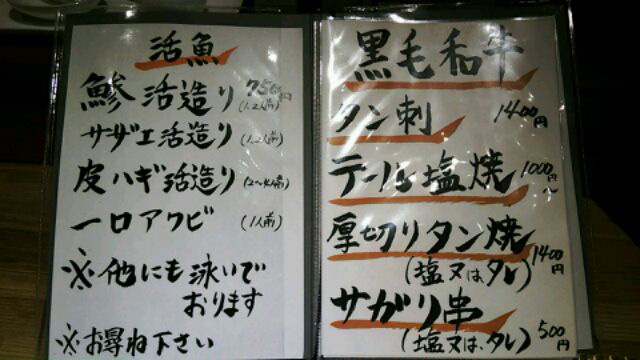 活魚
鯵活造り 750円 (1.2人前)
サザエ活造り (1.2人前)
皮ハギ活造り (2〜4人前)
一口アワビ (1人前)
※他にも泳いで
おります
※お尋ね下さい
黒毛和牛
タン刺 1400円
テール塩焼 1000円〜
厚切りタン焼 1400円
(塩又は、タレ)
サガリ串 500円
(塩又は、タレ)